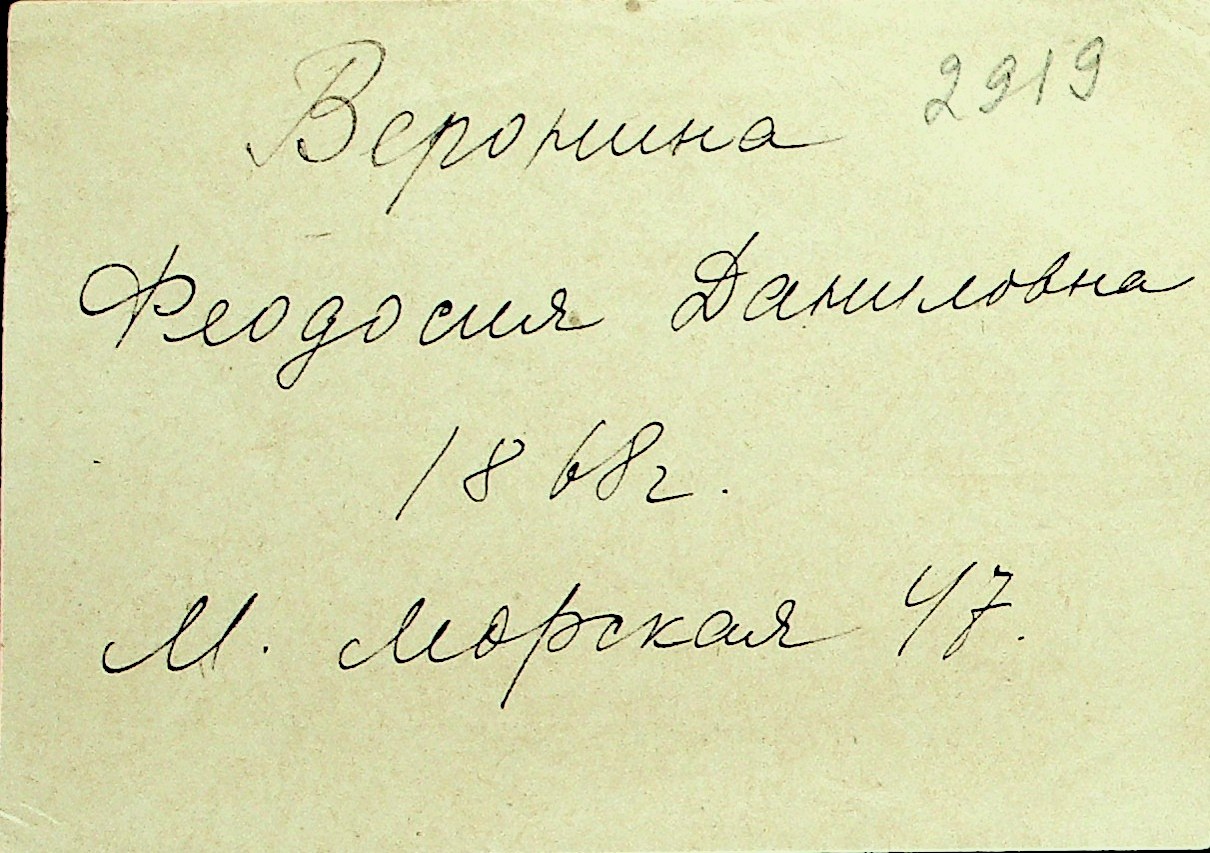 2919
Веронина
Феодосия Даниловна
1868г.
М. Морская 47.